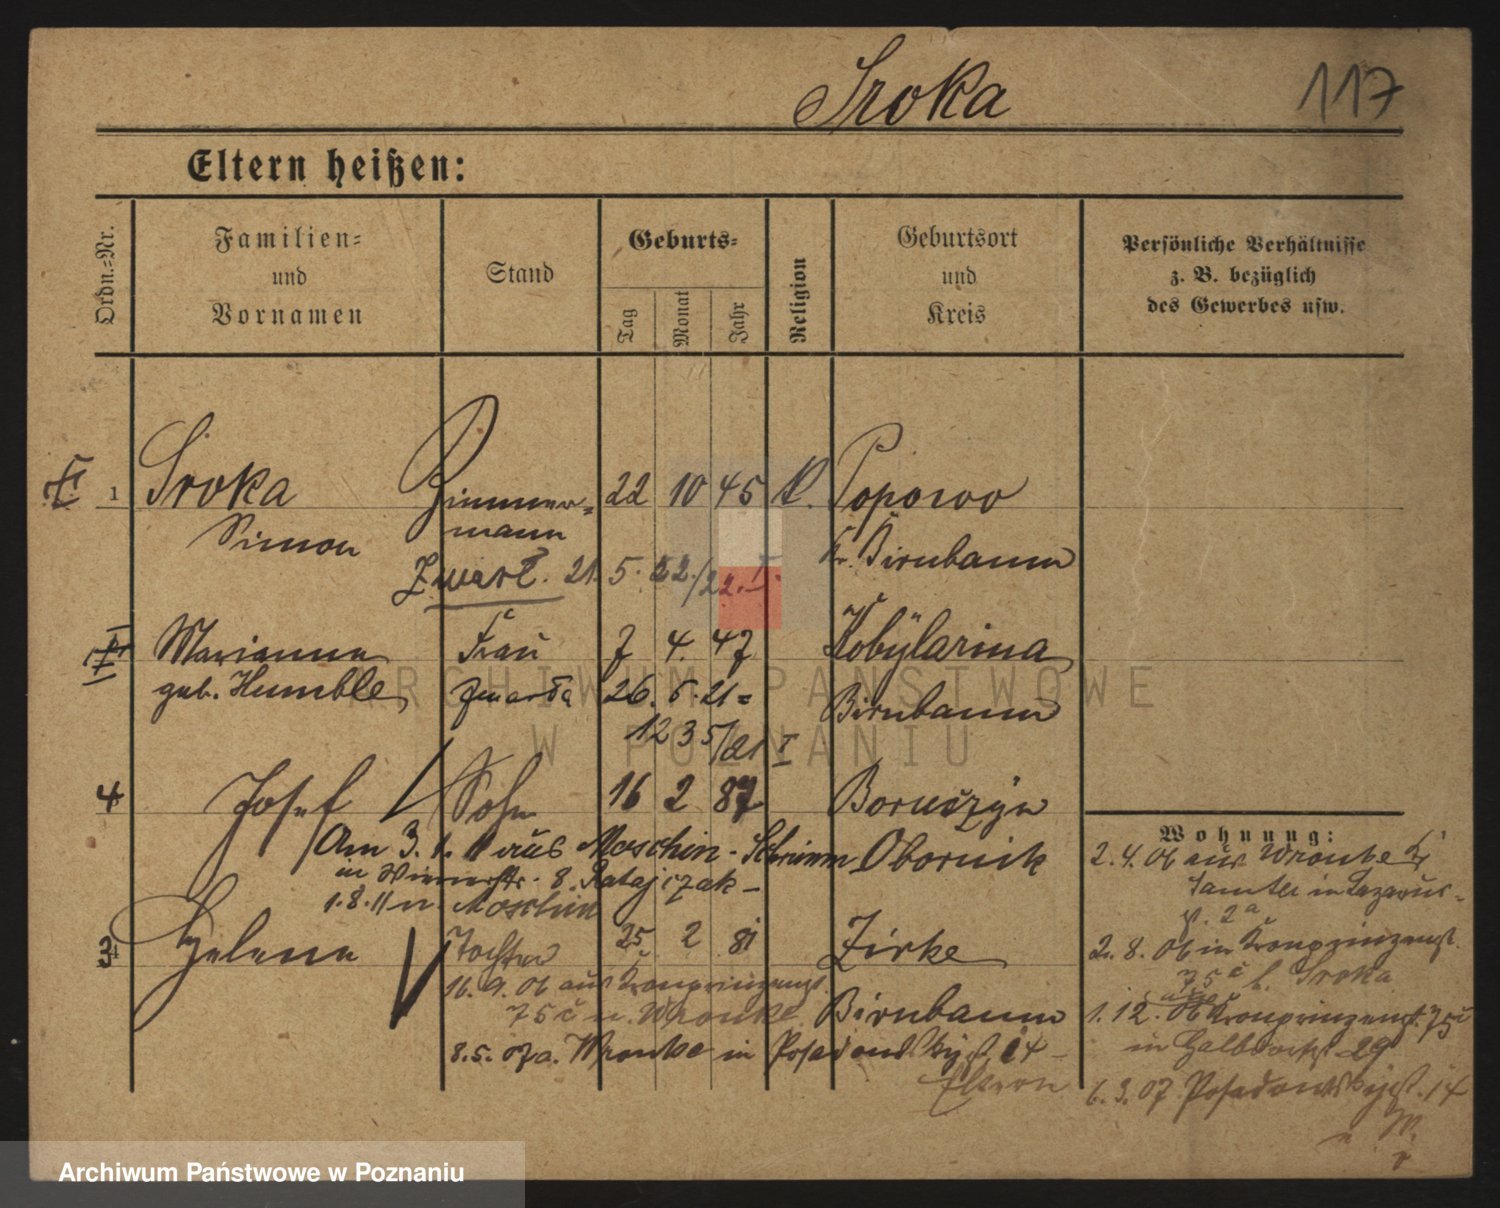 Sroka 117
Eltern heißen:
Ordn.-Nr.
Familien-
und
Vornamen
Stand
Geburts-
Tag
Monat
Jahr
Religion
Geburtsort
und
Kreis
Persönliche Verhältnisse
z. B. bezüglich
des Gewerbes usw.
1 Sroka Zimmer- 22 10 45 k. Popowo
Simon mann Kr. Birnbaum
21. 5. 22./22. I.
Marianna Frau 7 4. 47 Kobylarina
geb. Humble 26. 5. 21= Birnbaum
1235/21 I
4 Josef Sohn 16 2 87 Boruszyn
Wohnung:
Am 3. 1. 11 aus Moschin - Schrimm Obornik
2. 4. 06 aus Wronke Kr
in Wienerstr. 8. Ratajczak -
Samter in Lazarus-
1.8.11 n. Moschin
st. 2a
3 Helene Tochter 25 2 81 Zirke
2. 8. 06 in Kronprinzenst.
75c b. Sroka
16. 9. 06 aus Kronprinzenst.
75c n. Wronke Birnbaum
1. 12. 06 Kronprinzenst. 75c
8.5. 07 a. Wronke in Posadowskyst. 14 -
in 29
Eltern
6. 3. 07 Posadowskyst. 14
ARCHIWUM PAŃSTWOWE
W POZNANIU
Archiwum Państwowe w Poznaniu